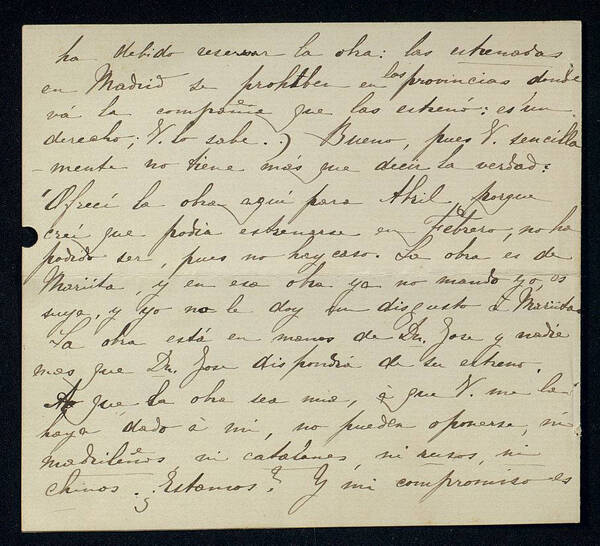 ha debido reservar la obra: las estrenadas
en Madrid se prohiben en las provincias donde
vá la compañia que las estrenó: es un
derecho; V. lo sabe.) Bueno, pues V. sencilla
-mente no tiene más que decir la verdad:
"Ofrecí la obra aquí para Abril, porque
creí que podía estrenarse en Febrero, no ha
podido ser, pues no hay caso. La obra es de
Mariita, y en esa obra ya no mando yo, es
suya, y yo no le doy un disgusto á Mariita.
La obra está en manos de Dn. Jose y nadie
mas que Dn. Jose dispondrá de su estreno.
A que la obra sea mia, ó que V. me la
haya dado á mi, no pueden oponerse, ni
madrileños ni catalanes, ni rusos, ni
chinos. ¿Estamos? Y mi compromiso es